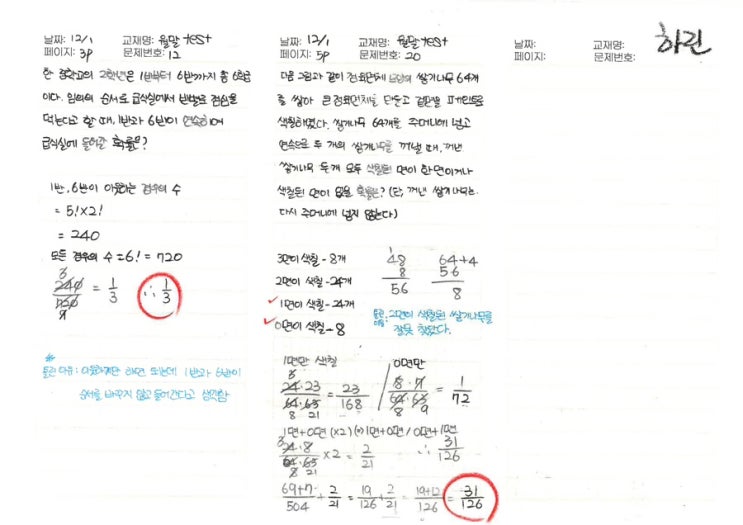 하진
날짜: 12/1 교재명: 월말 test
페이지: 3p 문제번호: 12
한 중학교의 2학년은 1반부터 6반까지 총 6학급
이다. 임의의 순서로 급식실에서 반별로 점심을
먹는다고 할 때, 1반과 6반이 연속하여
급식실에 들어갈 확률은?
1반, 6반이 이웃하는 경우의 수
= 5!×2!
= 240
모든 경우의 수 = 6! = 720
240/720 = 1/3 ∴ 1/3
틀린 이유 : 이웃하기만 하면 되는데 1반과 6반이
순서를 바꾸지 않고 들어간다고 생각함
날짜: 12/1 교재명: 월말 test
페이지: 5p 문제번호: 20
다음 그림과 같이 정육면체 모양의 쌓기나무 64개
를 쌓아 큰 정육면체를 만들고 겉면을 페인트로
색칠하였다. 쌓기나무 64개를 주머니에 넣고
연속으로 두 개의 쌓기나무를 꺼낼 때, 꺼낸
쌓기나무 두개 모두 색칠된 면이 한 면이거나
색칠된 면이 없을 확률은? (단, 꺼낸 쌓기나무는
다시 주머니에 넣지 않는다)
3면이 색칠 - 8개
2면이 색칠 - 24개
1면이 색칠 - 24개
0면이 색칠 - 8
48
8
56
64+4
56
8
틀린 이유: 2면이 색칠된 쌓기나무를
잘못 찾았다.
1면만 색칠 0면만
24·23/64·63 = 23/168 8·7/64·63 = 1/72
1면+0면 (×2) 1면+0면 / 0면+1면
24·8/64·63 ×2 = 2/21 ∴ 31/126
69+7/504 + 2/21 = 19/126 + 2/21 = 19+12/126 = 31/126
날짜: 교재명:
페이지: 문제번호: